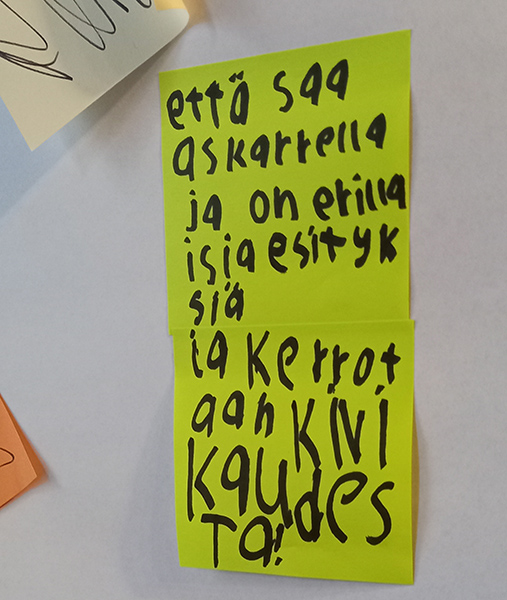 että saa
askarrella
ja on erilla
isia esityk
siä
ia kerrot
aan KIVI
kaudes
Ta!